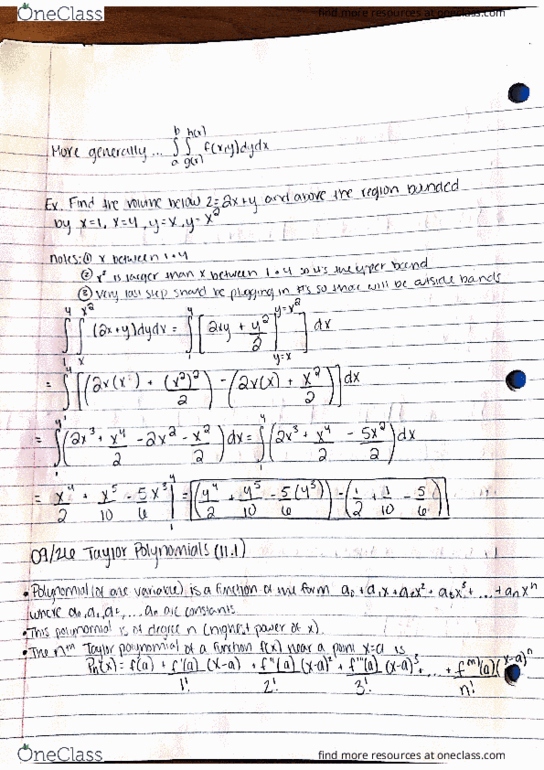 OneClass
find more resources at oneclass.com
More generally ... ∫_a^b ∫_{g(x)}^{h(x)} f(x,y)dydx
Ex. Find the volume below z=2x+y and above the region bunded
by x=1, x=4, y=x, y=x²
Notes: ① x between 1+4
② x² is larger than x between 1+4 so it's the upper bound
③ Very last step should be plugging in #'s so those will be outside bands
∫_1^4 ∫_x^{x²} (2x+y)dydx = ∫_1^4 [2xy + y²/2]_{y=x}^{y=x²} dx
= ∫_1^4 [(2x(x²) + (x²)²/2) - (2x(x) + x²/2)] dx
= ∫_1^4 (2x³ + x⁴/2 - 2x² - x²/2) dx = ∫_1^4 (2x³ + x⁴/2 - 5x²/2) dx
= x⁴/2 + x⁵/10 - 5x³/6 |_1^4 = (4⁴/2 + 4⁵/10 - 5(4³)/6) - (1/2 + 1/10 - 5/6)
09/26 Taylor Polynomials (11.1)
• Polynomial (of one variable) is a function of the form a₀ + a₁x + a₂x² + a₃x³ + ... + aₙxⁿ
where a₀, a₁, a₂, ... aₙ are constants.
• This polynomial is of degree n (highest power of x).
• The nᵗʰ Taylor polynomial of a function f(x) near a point x=a is
Pₙ(x) = f(a) + f'(a)/1! (x-a) + f''(a)/2! (x-a)² + f'''(a)/3! (x-a)³ ... + f⁽ⁿ⁾(a)/n! (x-a)ⁿ
OneClass
find more resources at oneclass.com